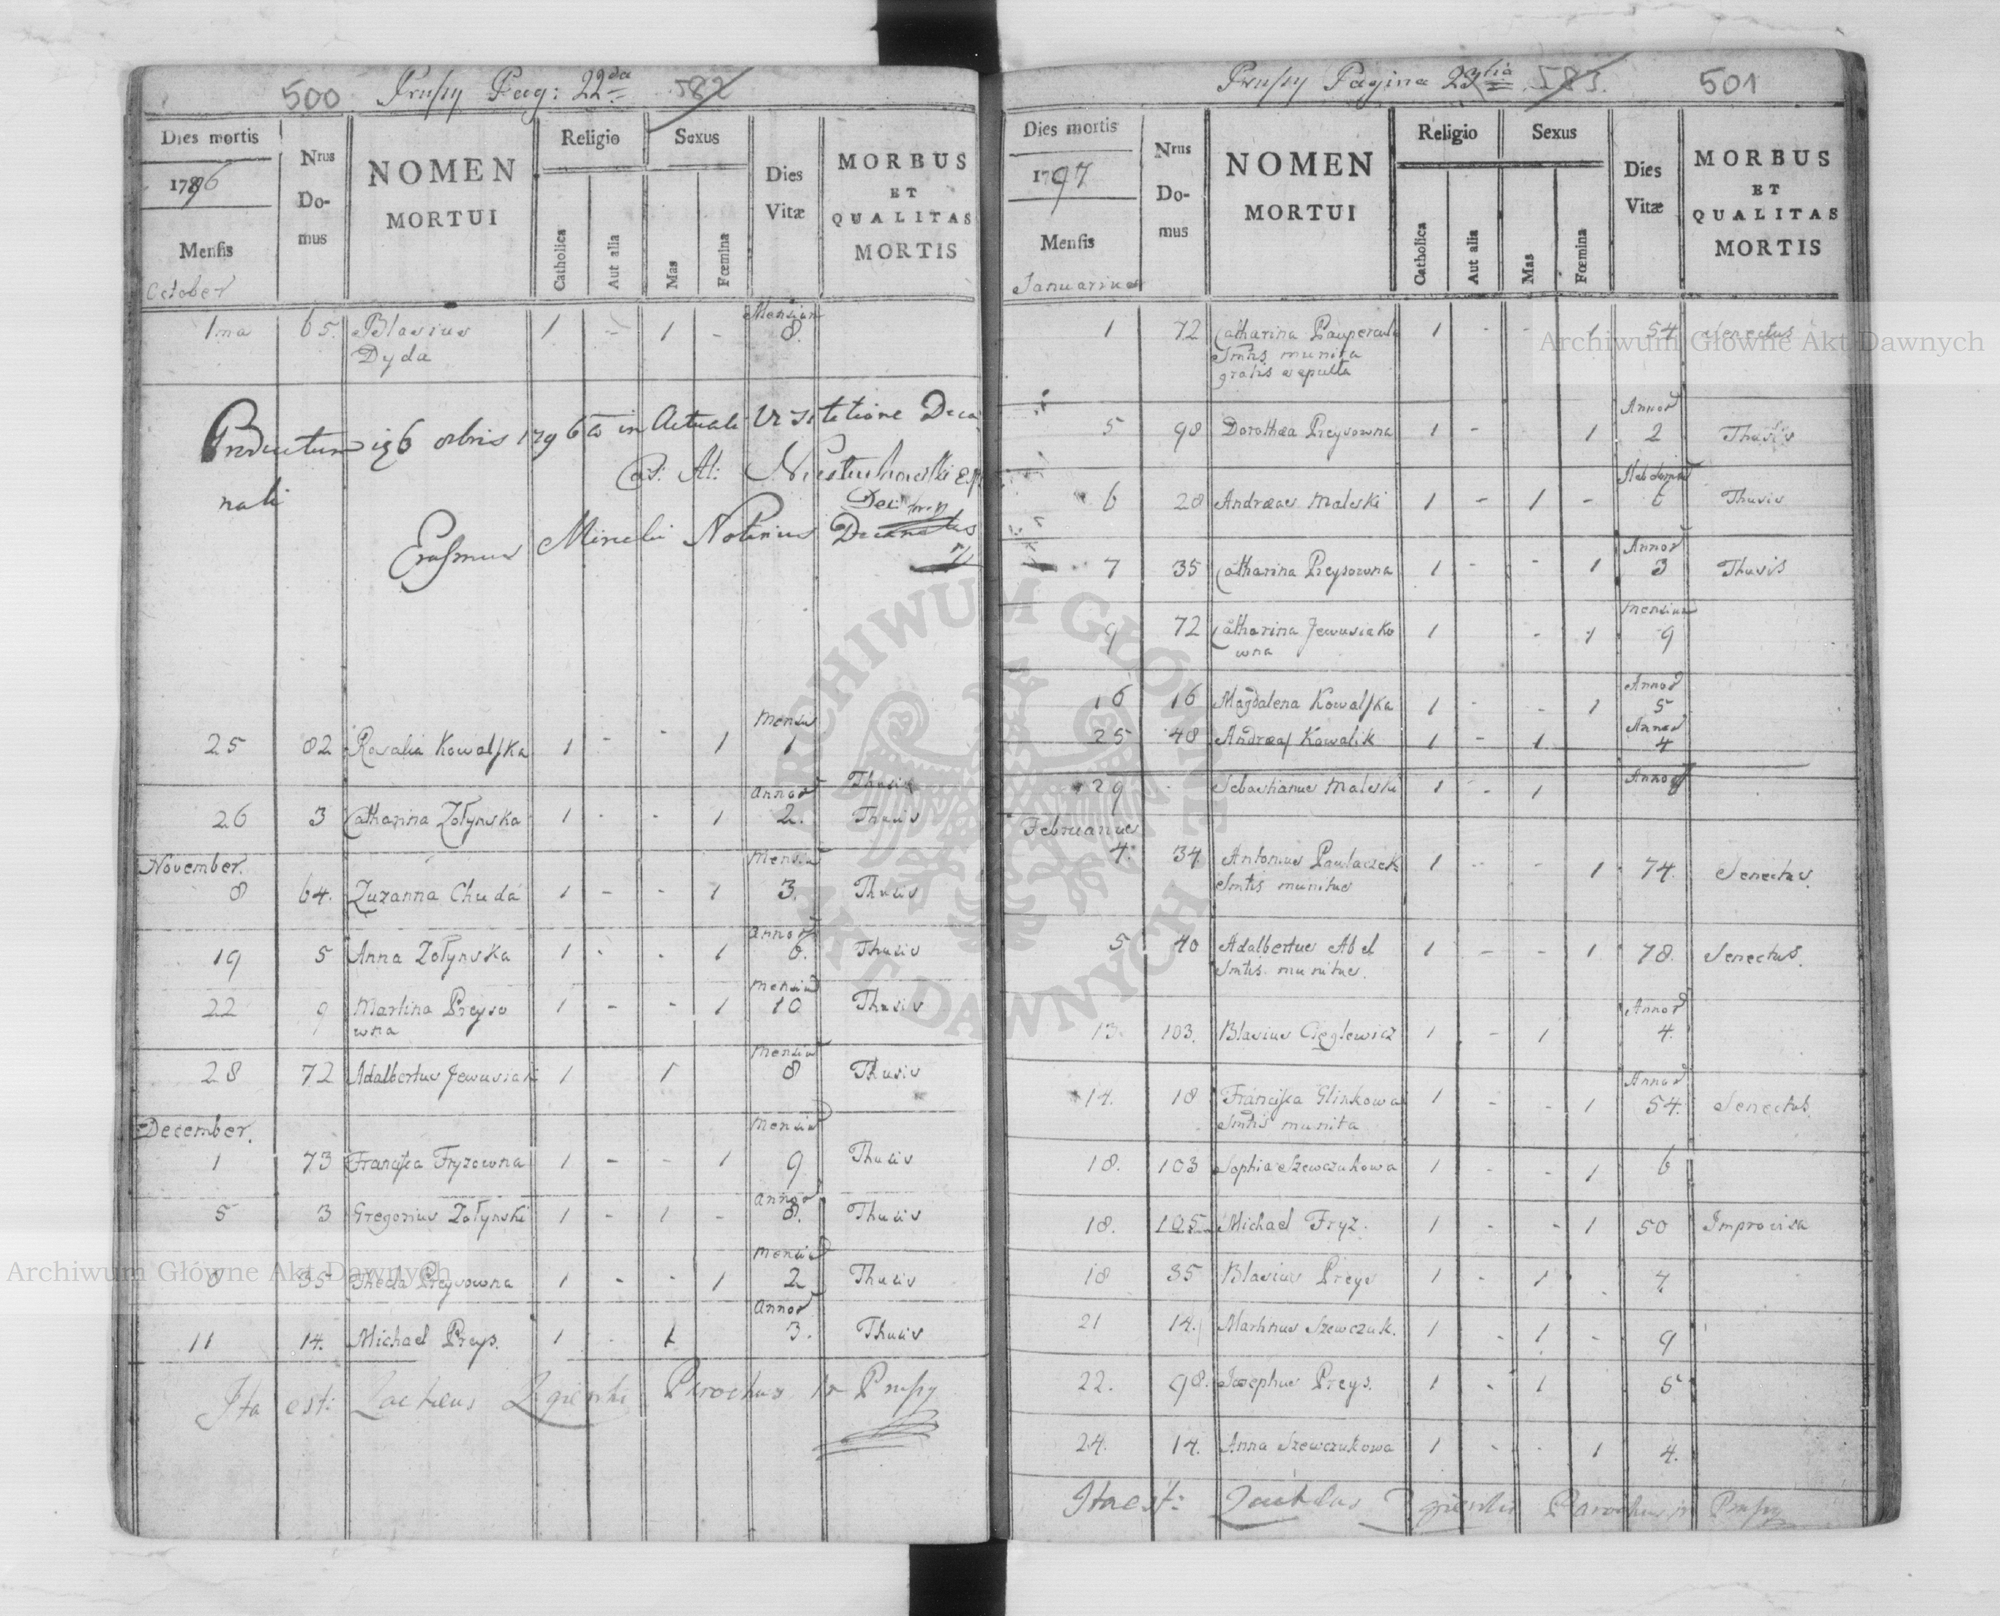 500 Prussy Pag: 22da 582
Dies mortis
1796
Mensis
October
Nrus Domus
NOMEN MORTUI
Religio
Catholica
Aut alia
Sexus
Mas
Fœmina
Dies Vitæ
MORBUS ET QUALITAS MORTIS
1ma 65. Blasius Dyda 1 - 1 - Mensium 8.
Productum in Actuali Visitatione Decanali
Erasmus Notarius Decanatus
25 82 Rosalia Kowalska 1 - - 1 Mensis 1
26 3 Catharina Zołynska 1 - - 1 Annor 2. Thusis
November.
8 64. Zuzanna Chuda 1 - - 1 Mensiu 3. Thusis
19 5 Anna Zołynska 1 - - 1 Annor 6. Thusis
22 9 Martina Preysowna 1 - - 1 Mensiu 10 Thusis
28 72 Adalbertus Jewusiak 1 1 Mensiu 8 Thusis
December.
1 73 Franciska Fryzowna 1 - - 1 Mensiu 9 Thusis
5 3 Gregorius Zołynski 1 - 1 - Annor 8. Thusis
8 35 Thecla Preysowna 1 - - 1 Mensiu 2 Thusis
11 14. Michael Preys. 1 - 1 Annor 3. Thusis
Ita est: Parochus Prussy
Prussy Pagina 23tia 583. 501
Dies mortis
1797
Mensis
Januarius
Nrus Domus
NOMEN MORTUI
Religio
Catholica
Aut alia
Sexus
Mas
Fœmina
Dies Vitæ
MORBUS ET QUALITAS MORTIS
1 72 Catharina Paupercula 1 - - 1 54 Senectus
Smtis munita
gratis sepulta
5 98 Dorothea Preysowna 1 - 1 Annor 2 Thusis
6 28 Andreas Maleski 1 - 1 - 6 Thusis
7 35 Catharina Preysowna 1 - - 1 Annor 3 Thusis
9 72 Catharina Jewusiakowna 1 - 1 Mensium 9
16 16 Magdalena Kowalska 1 - - 1 Annor 5
25 48 Andreas Kowalik 1 - 1 Annor 4
29 - Sebastianus Maleski 1 - 1 Annor
Februarius
4. 34 Antonius Pawlaczek 1 - - 1 74. Senectus.
Smtis munitus
5 40 Adalbertus Abel 1 - - 1 78. Senectus.
Smtis munitus.
13. 103. Blasius Cięglewicz 1 - 1 Annor 4.
14. 18 Franciska Glinkowa 1 - - 1 Annor 54. Senectus.
Smtis munita
18. 103 Sophia Szewczukowa 1 - - 1 6
18. 105 Michael Fryz. 1 - - 1 50 Improvisa
18 35 Blasius Preys 1 - 1 4
21 14. Martinus Szewczuk. 1 - 1 - 9
22. 98. Josephus Preys. 1 - 1 5
24. 14. Anna Szewczukowa 1 - - 1 4.
Ita est: Parochus Prussy
Archiwum Główne Akt Dawnych
Archiwum Główne Akt Dawnych
ARCHIWUM GŁÓWNE AKT DAWNYCH